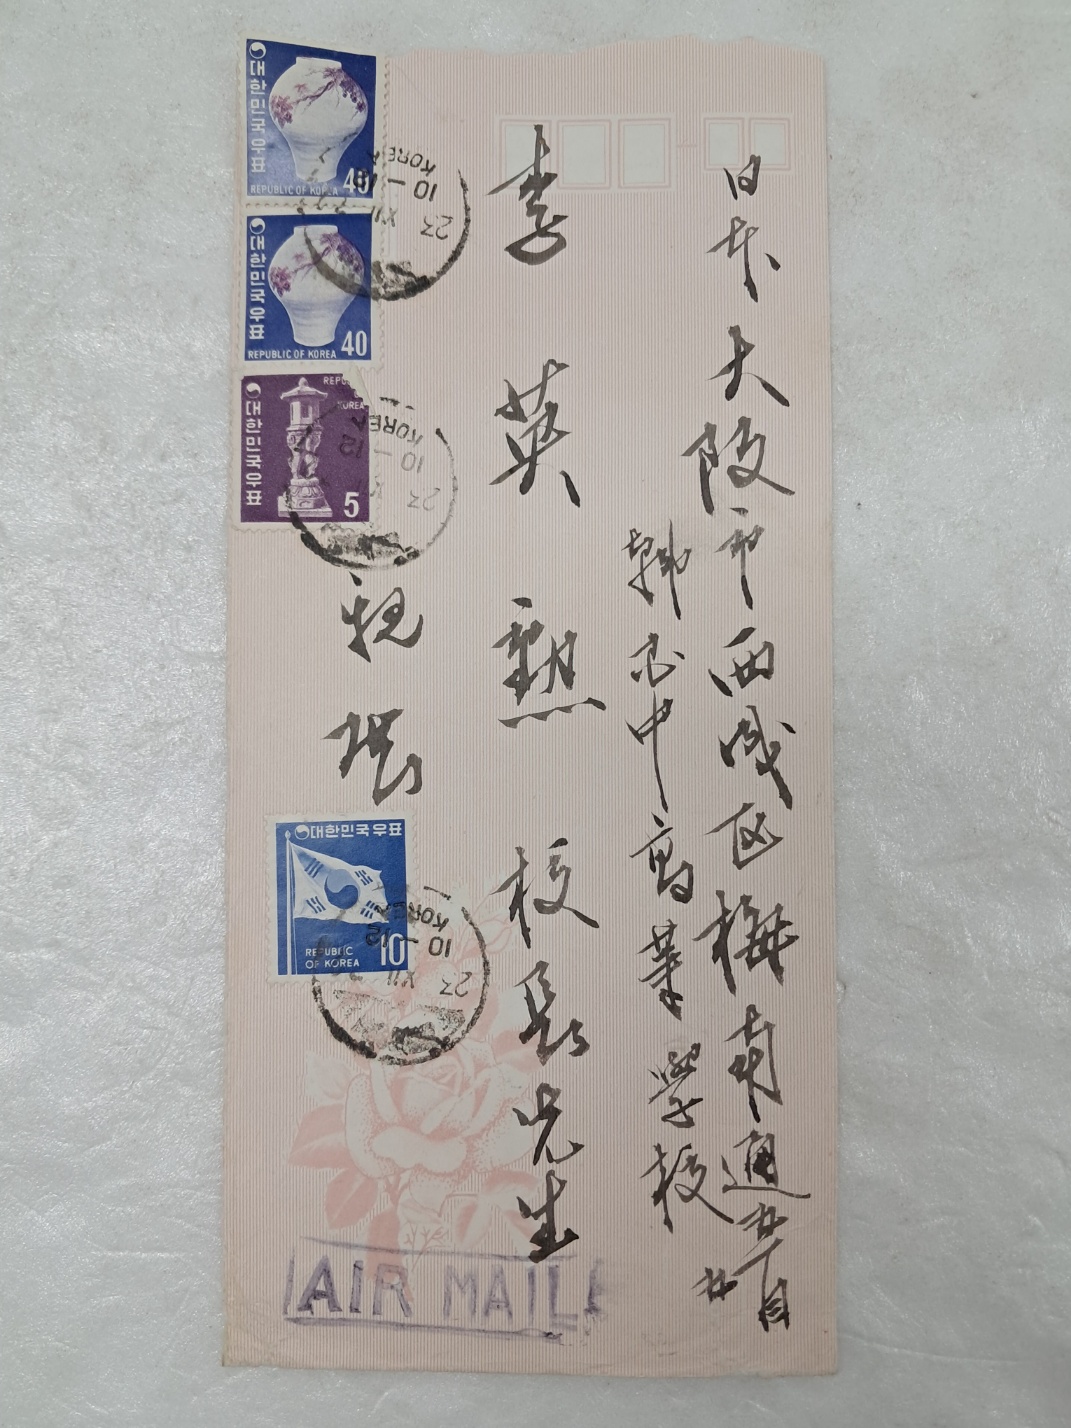 日本大阪市西成区梅南通廿丁目廿
韓国中高等学校
李英勲校長先生
祝
대한민국우표
REPUBLIC OF KOREA 40
대한민국우표
REPUBLIC OF KOREA 40
대한민국우표
REPUBLIC KOREA
5
대한민국우표
REPUBLIC
OF KOREA 10
KOREA
10-12
23 XII
KOREA
10-12
23
KOREA
10-12
23 XII
AIR MAIL